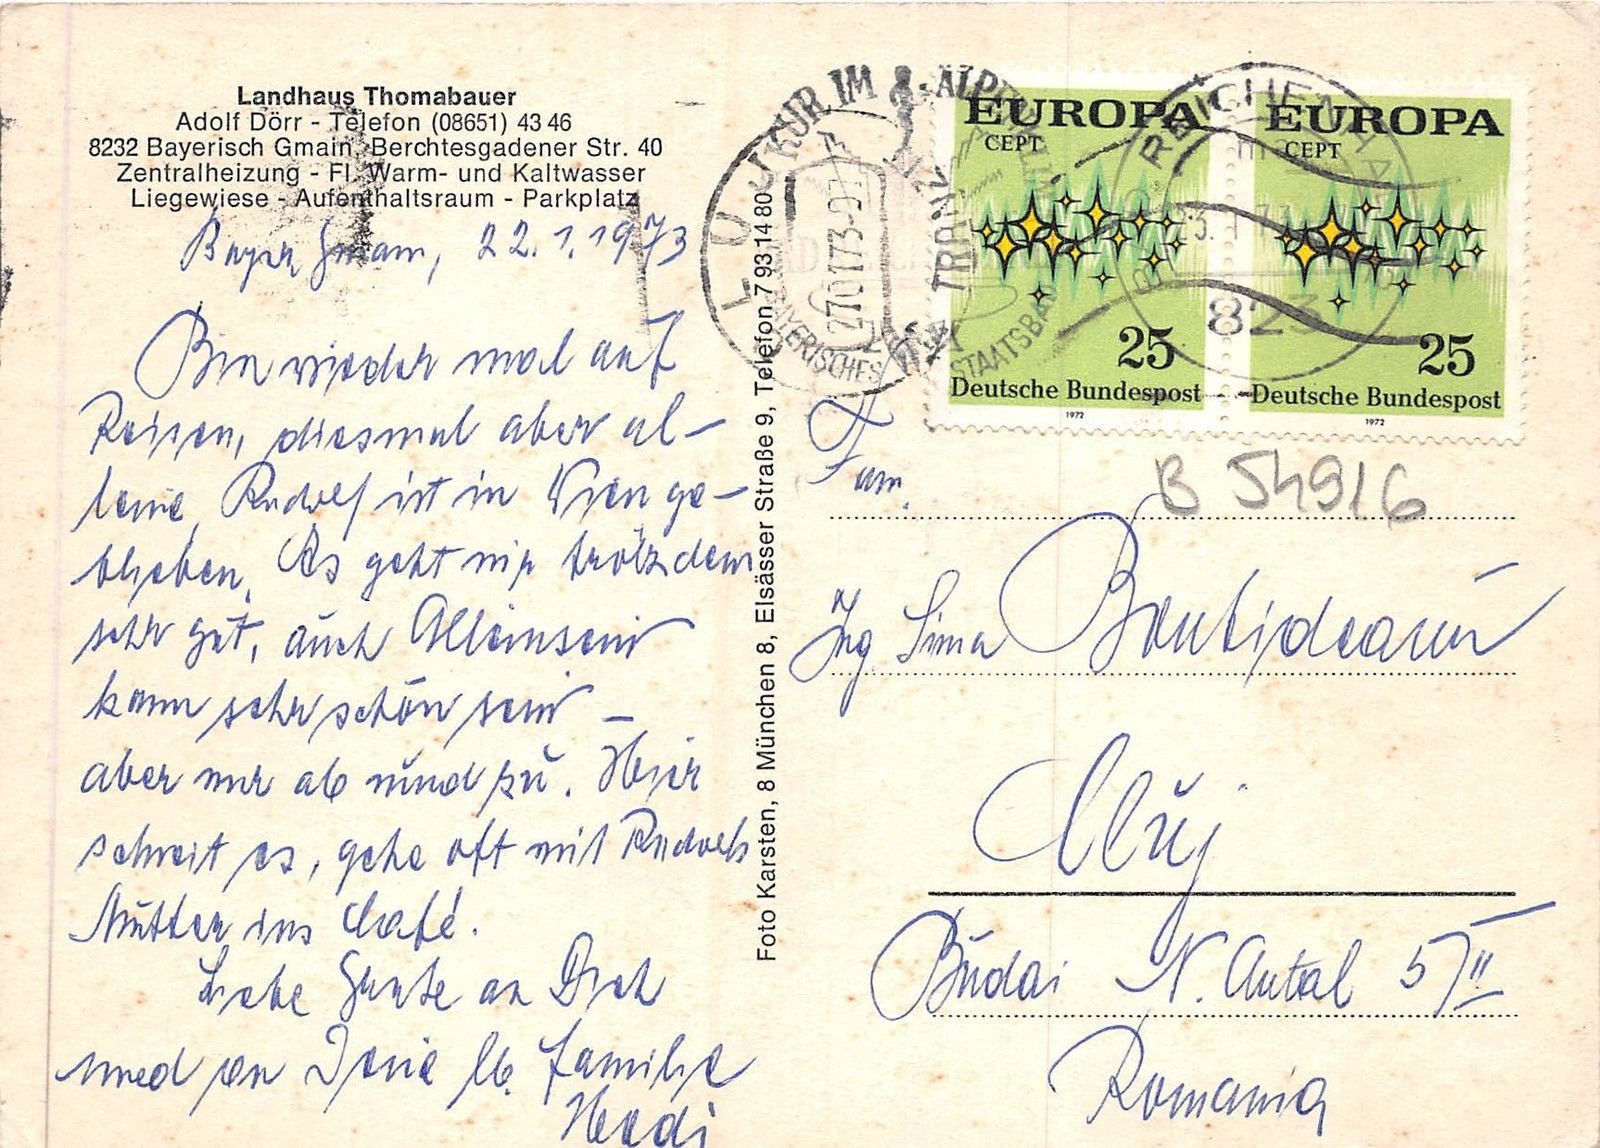 Landhaus Thomabauer
Adolf Dörr - Telefon (08651) 43 46
8232 Bayerisch Gmain, Berchtesgadener Str. 40
Zentralheizung - Fl. Warm- und Kaltwasser
Liegewiese - Aufenthaltsraum - Parkplatz
Bayer Gmain, 22.1.1973
Bin wieder mal auf
Reisen, diesmal aber al-
leine, Rudolf ist in Wien ge-
blieben. Es geht mir trotzdem
sehr gut, auch Alleinsein
kann sehr schön sein –
aber nur ab und zu. Hier
schneit es, gehe oft mit Rudolfs
Mutter ins Café.
Liebe Grüße an Dich
und an Deine lb. Familie
Hedi
Foto Karsten, 8 München 8, Elsässer Straße 9, Telefon 7 93 14 80
KUR IM ALPEN
BAYERISCHES STAATSBAD
27.01.73
EUROPA
CEPT
25
Deutsche Bundespost
1972
EUROPA
CEPT
25
Deutsche Bundespost
1972
REICHENHALL
823
B 54916
Fam.
Ing Sima Bontideanu
Cluj
Budai N. Antal 5/II
Romania